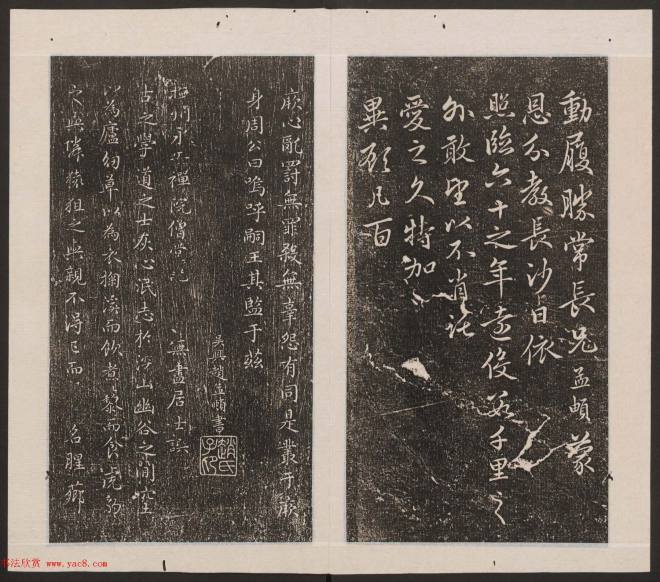 動履勝常長兄孟頫蒙
恩分教長沙日依
照臨六十之年遠役數千里之
外敢望以不肖託
愛之久特加
異顧凡百
厥心亂罰無罪殺無辜怨有同是叢于厥
身周公曰嗚呼嗣王其監于茲
吳興趙孟頫書
趙氏子昂
撫州永安禪院僧堂記 無盡居士譔
古之學道之士灰心泯志於深山幽谷之間穴土
以為廬紉草以為衣掬溪而飲煮藜而食虎豹
之與隣猿狙之與親不得已而 名腥薌
书法欣赏 www.yac8.com